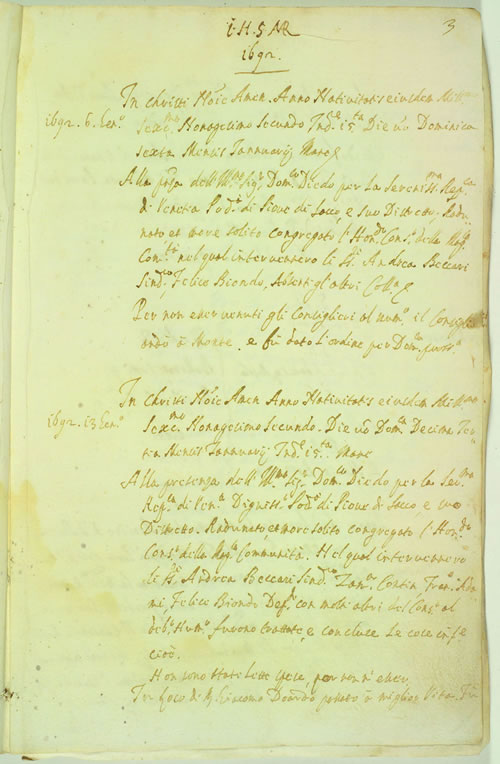 I.H.S. M
3
1692.
In Christi No[m]ie Amen. Anno Nativitatis eiusdem Mill.mo
1692. 6. Gen.o
Sexc.mo Nonagesimo Secundo Ind.e 15.ta Die v.o Dominica
sexta Mensis Jannuarij Mane
Alla p[rese]nza dell'Ill.mo Sig.r Dom.co Diedo per la Sereniss.ma Rep.ca
di Venetia Pod.tà di Piove di Sacco, e suo Distretto. Radu
nato et more solito congregato l'Hon.do Cons.o della Mag.ca
Com.tà nel qual intervennero li SS.i Andrea Beccari
Sind.co, Felice Biondo, Absenti gl'altri Colleg
Per non esser venuti gli Consiglieri al num.o il Consiglio
andò a monte, e fu dato l'ordine per Dom.ca
In Christi No[m]ie Amen Anno Nativitatis eiusdem Mill.mo
1692. 13 Gen.o
Sexc.mo Nonagesimo Secundo. Die v.o Dom.ca Decima Ter
tia Mensis Jannuarij Ind.e 15.ta Mane
Alla presenza dell'Ill.mo Sig.r Dom.co Diedo per la Ser.ma
Rep.ca di Ven.a Digniss.o Pod.tà di Piove di Sacco, e suo
Distretto. Radunato, et more solito congregato l'Hon.do
Cons.o della Mag.ca Communità. Nel qual intervennero
li SS.i Andrea Beccari Sind.co Contin
Felice Biondo Dep.ti con molti altri del Cons.o al
deb.o Num.o, furono trattate, e concluse le cose inf.e
cioè.
Non sono state lette spese, per non v'esser
In loco di Giacomo Doardo passato a miglior Vita